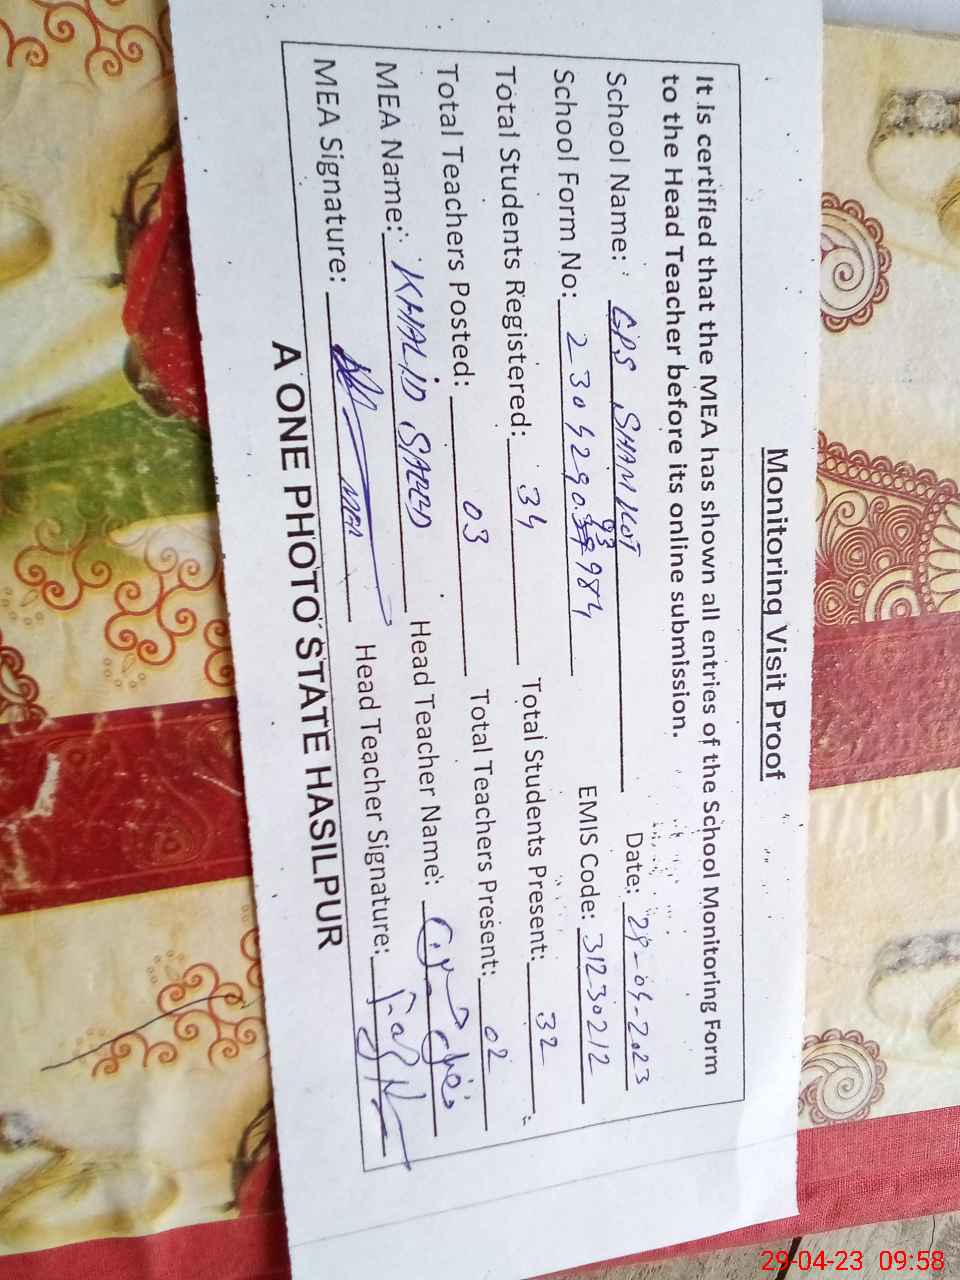 Monitoring Visit Proof
It is certified that the MEA has shown all entries of the School Monitoring Form
to the Head Teacher before its online submission.
School Name: GPS SHAM KOT Date: 29-04-2023
School Form No: 2304290 93 984 EMIS Code: 31230212
Total Students Registered: 34 Total Students Present: 32
Total Teachers Posted: 03 Total Teachers Present: 02
MEA Name: KHALID SAEED Head Teacher Name:
MEA Signature: MEA Head Teacher Signature:
A ONE PHOTO STATE HASILPUR
29-04-23 09:58